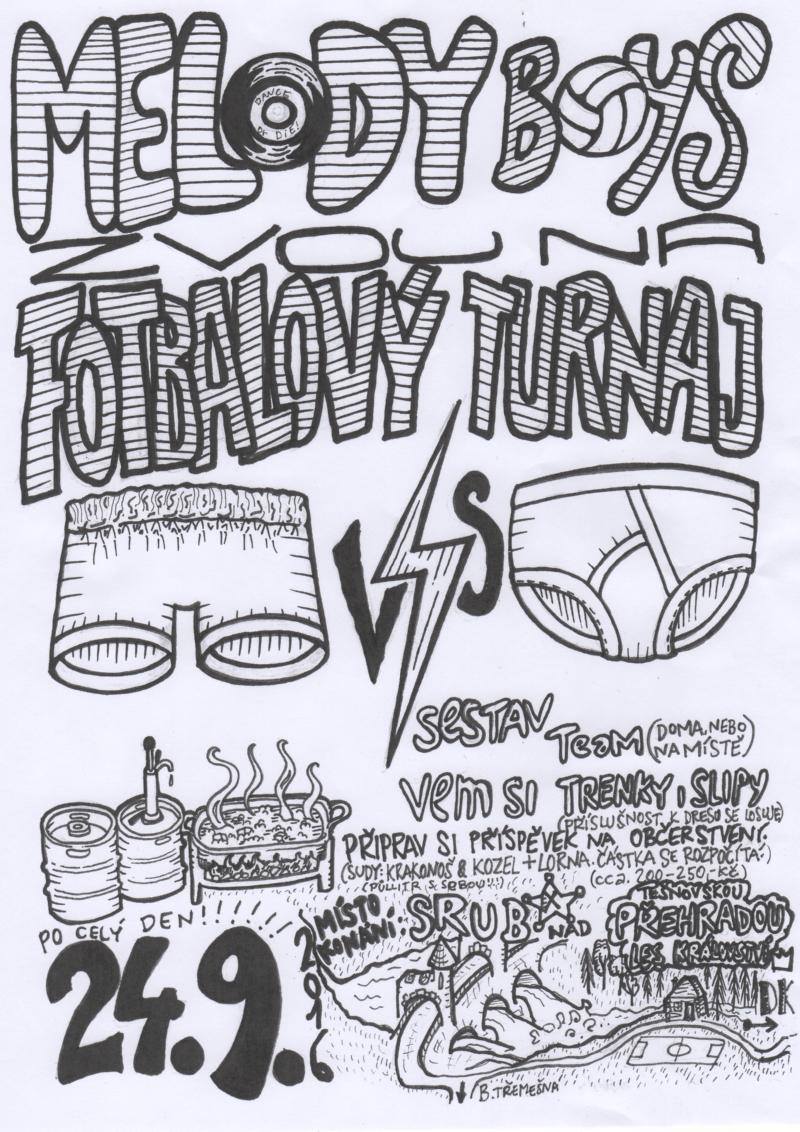 MELODY BOYS
DANCE OR DIE!
ZVOU NA
FOTBALOVÝ TURNAJ
VS
SESTAV TEAM (DOMA, NEBO NA MÍSTĚ)
VEM SI TRENKY I SLIPY
(PŘÍSLUŠNOST K DRESU SE LOSUJE)
PŘIPRAV SI PŘÍSPĚVEK NA OBČERSTVENÍ.
(SUDY: KRAKONOŠ & KOZEL + LORNA. ČÁSTKA SE ROZPOČÍTÁ:)
(PŮLLITR S SEBOU!!) (CCA. 200-250,-KČ)
PO CELÝ DEN!!!!!!!
24.9.
2016
MÍSTO KONÁNÍ:
SRUB NAD
TĚŠNOVSKOU
PŘEHRADOU
LES KRÁLOVSTVÍ
DK
B. TŘEMEŠNÁ